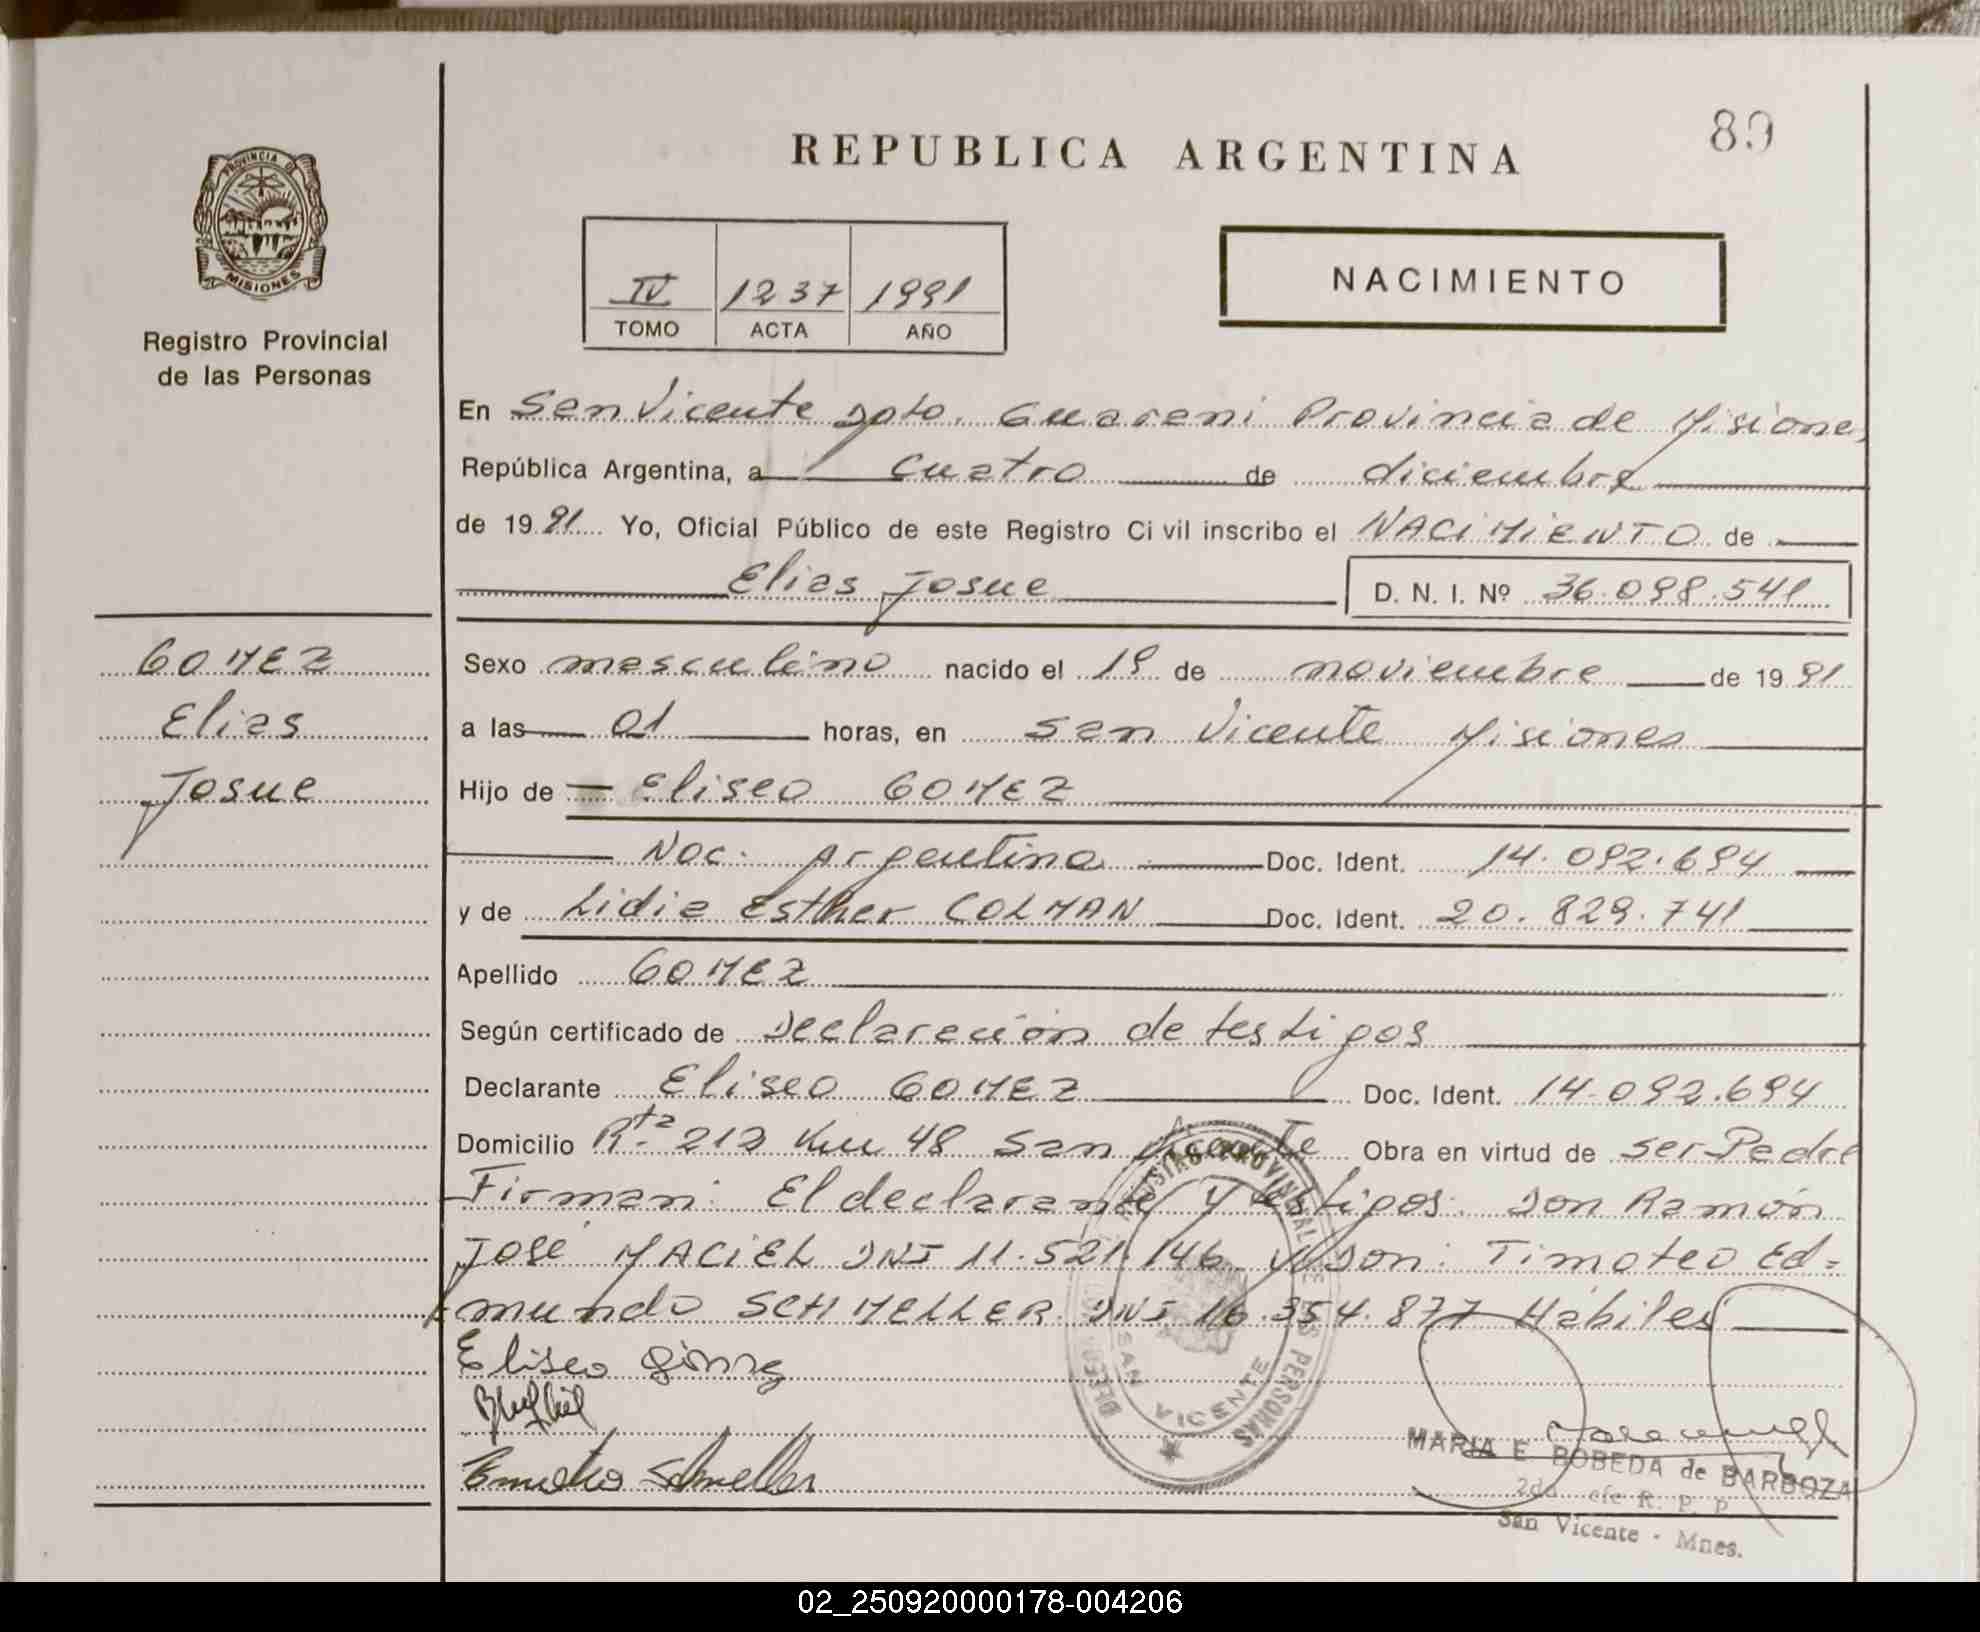 89
REPUBLICA ARGENTINA
PROVINCIA DE
MISIONES
Registro Provincial
de las Personas
IV 1237 1991
TOMO ACTA AÑO
NACIMIENTO
En San Vicente Dpto. Guarani Provincia de Misiones
República Argentina, a cuatro de diciembre
de 1991 Yo, Oficial Público de este Registro Civil inscribo el NACIMIENTO de
Elias Josue D. N. I. Nº 36.098.541
GOMEZ
Elias
Josue
Sexo masculino nacido el 19 de noviembre de 1991
a las 01 horas, en San Vicente Misiones
Hijo de Eliseo GOMEZ
Nac. Argentina Doc. Ident. 14.092.694
y de Lidia Esther COLMAN Doc. Ident. 20.829.741
Apellido GOMEZ
Según certificado de Declaración de testigos
Declarante Eliseo GOMEZ Doc. Ident. 14.092.694
Domicilio Rta. 212 Km 48 San Vicente Obra en virtud de ser Padre
Firman: El declarante y testigos: Don Ramón
José MACIEL DNI 11.521.146 y Don: Timoteo Ed=
mundo SCHMELLER DNI 16.354.877 Hábiles
Eliseo Gómez
PROVINCIAL DE LAS PERSONAS
SAN VICENTE
MARIA E BOBEDA de BARBOZA
R. P. P.
San Vicente - Mnes.
02_250920000178-004206